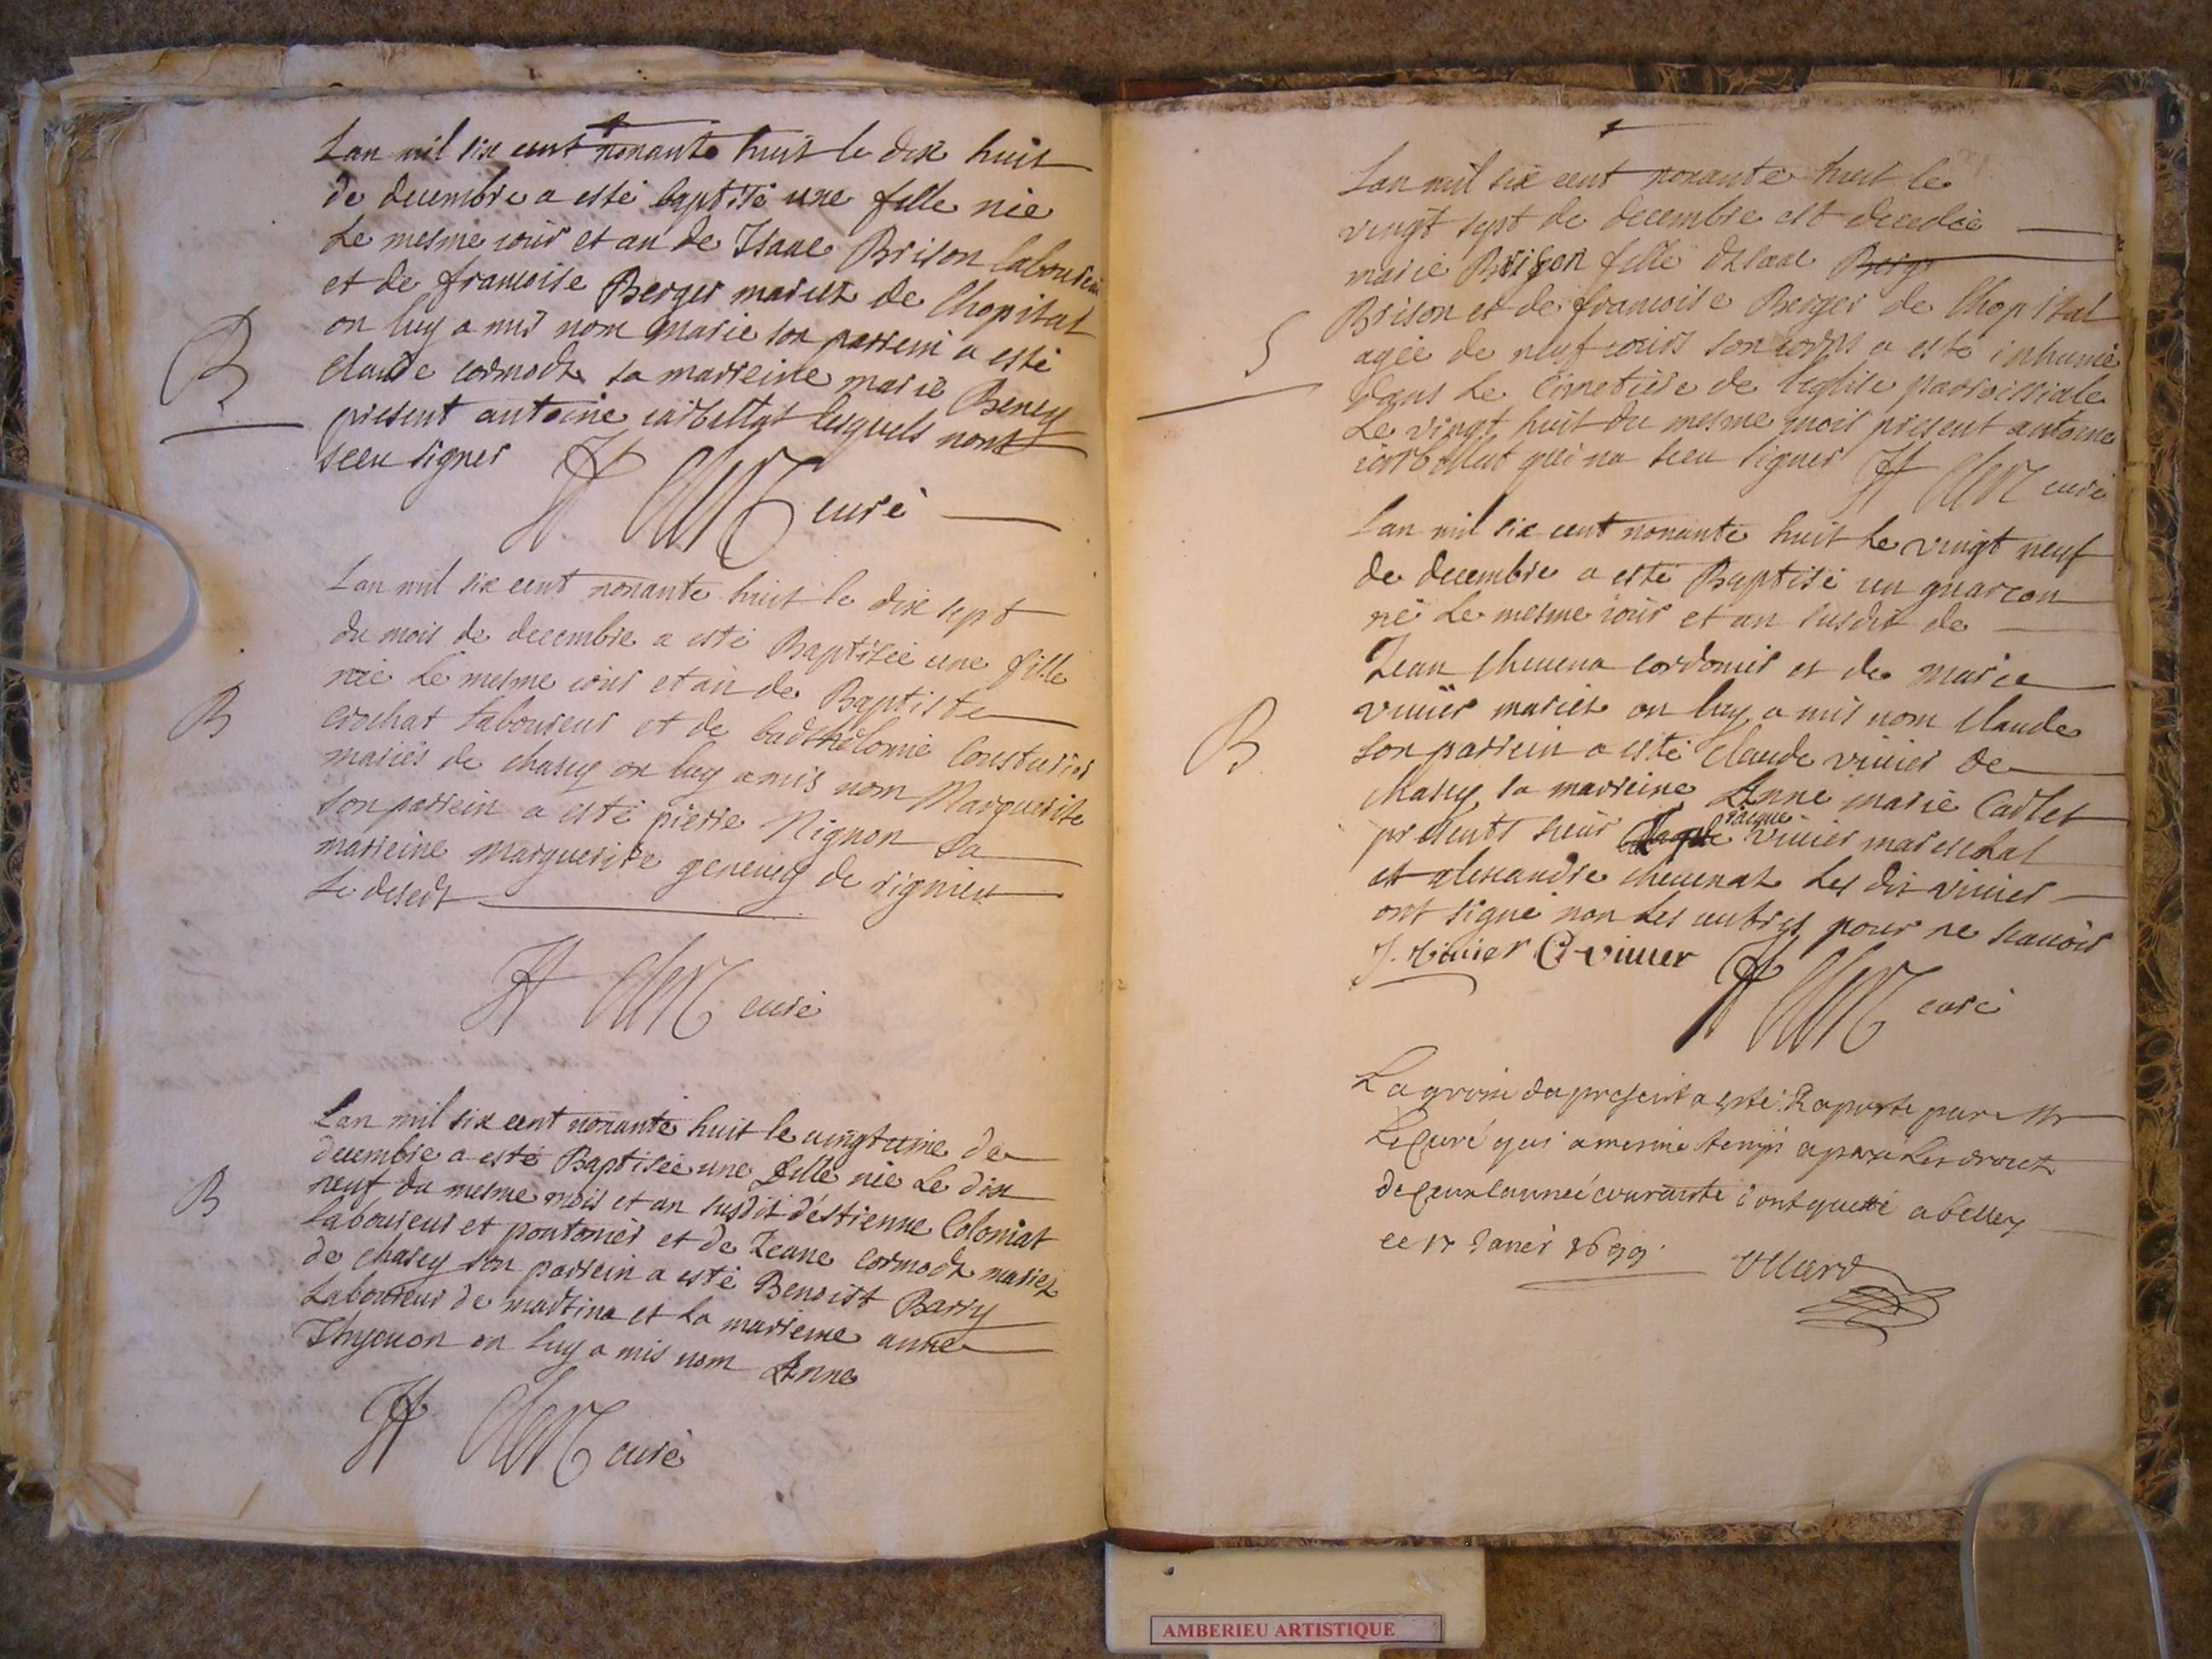 Lan mil six cent nonante huit le dix huit
de decembre a esté baptisé une fille née
Le mesme iour et an de Isaac Brison laboureur
et de francoise Berger mariez de Lhopital
on luy a mis nom Marie son parrein a esté
claude cormodz sa marreine marie Beney
present antoine carbillat lesquels nont
sceu signer
B
curé
Lan mil six cent nonante huit le dix sept
du mois de decembre a esté Baptisée une fille
née Le mesme iour et an de Baptiste
crochat Laboureur et de barthelomie Cousturier
mariés de chasey on luy a mis nom Marguerite
son parrein a esté pierre Nignon sa
marreine marguerite geneney de rignieu
Le desert
B
curé
Lan mil six cent nonante huit le vingtieme de
decembre a esté Baptisée une fille née Le dix
neuf du mesme mois et an susdit d'éstienne Coloniat
Laboureur et pontonier et de Jeane cormodz mariez
de chasey son parrein a esté Benoist Barry
Laboureur de martina et La marreine anne
on luy a mis nom Anne
B
curé
Lan mil six cent nonante huit le
vingt sept de decembre est decedée
marie Brison fille dIsaac Berge
Brison et de francoise Berger de Lhopital
agée de neuf iours son corps a esté inhumé
dans Le Cimetiere de leglise parroissiale
Le vingt huit du mesme mois present antoine
carbillat qui na sceu signer curé
S
Lan mil six cent nonante huit Le vingt neuf
de decembre a esté Baptisé un guarcon
né Le mesme iour et an susdit de
Jean chevena cordonier et de marie
vivier mariez on luy a mis nom claude
son parrein a esté claude vivier de
chasey sa marreine Anne marie Carlet
presents sieur iacque vivier mareschal
et alexandre chevenat Les dit vivier
ont signé non Les autres pour ne scavoir
B
J. vivier C vivier
curé
La grosse du present a esté Raporté par Mr
Le Curé qui a mesme temps a payé Les droits
de ceux Lannée courante dont quitté a belley
ce 17 Janvier 1699
AMBERIEU ARTISTIQUE